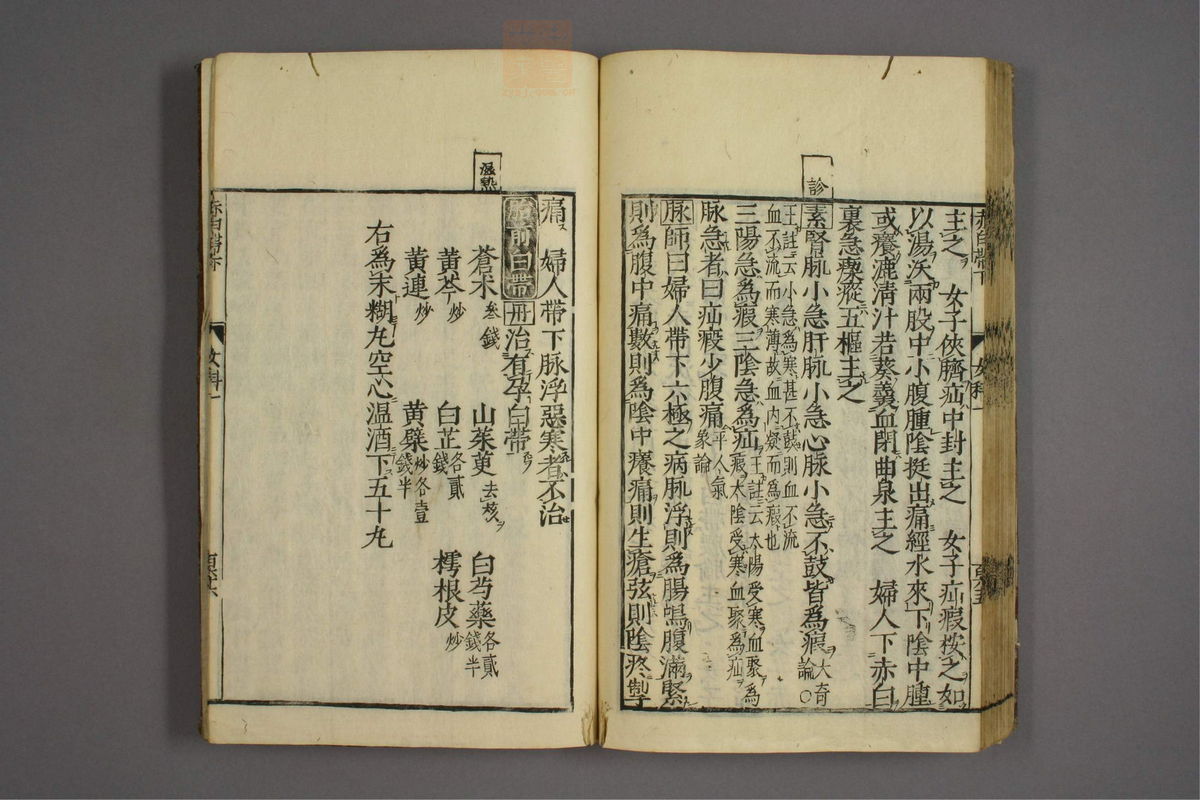 診
主之　女子俠臍疝中封主之　女子疝瘕按之如
以湯沃兩股中小腹腫陰挺出痛經水來下陰中腫
或癢漉清汁若葵羹血閉曲泉主之　婦人下赤白
裏急瘈瘲五樞主之
素腎脉小急肝脉小急心脉小急不鼓皆爲瘕大奇論○
王註云小急爲寒甚不鼓則血不流
血不流而寒薄故血内凝而爲瘕也
三陽急爲瘕三陰急爲疝王註云太陽受寒血聚爲瘕太陰受寒血聚爲疝
脉急者曰疝瘕少腹痛平人氣象論
脉師曰婦人帶下六極之病脉浮則爲腸鳴腹滿緊
則爲腹中痛數則爲陰中癢痛則生瘡弦則陰疼掣
痛　婦人帶下脉浮惡寒者不治
溫熱
胎前白帶丹治有孕白帶
蒼术叁錢　山茱萸去核　白芍藥各貳錢半
黃芩炒　白芷各貳錢　樗根皮炒
黃連炒　黃檗炒各壹錢半
右爲末糊丸空心温酒下五十丸
赤白帶下
女科一